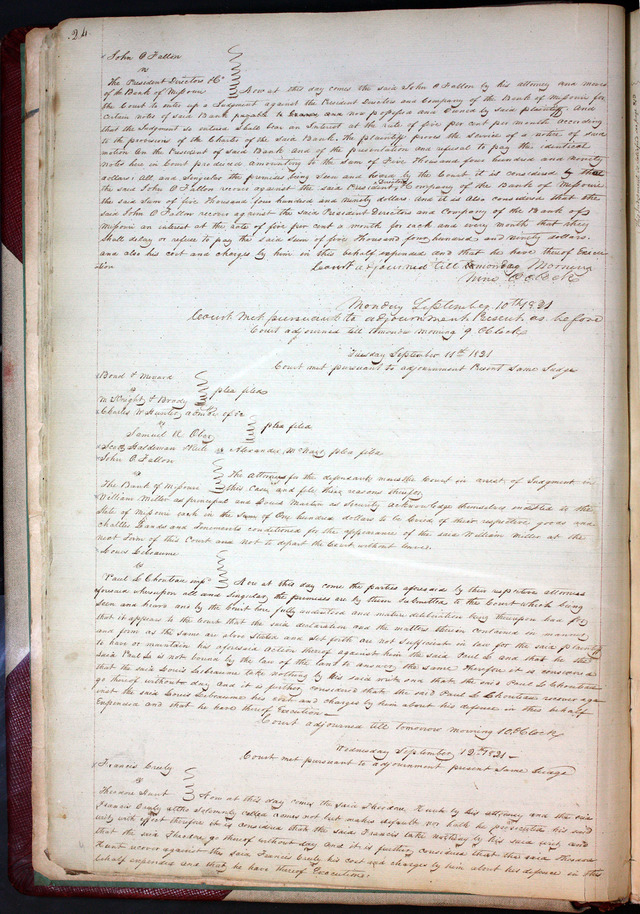 24
John O Fallon
vs
The President Directors &Co
of the Bank of Missouri } Now at this day comes the said John O Fallon by his attorney and moves
the Court to enter up a Judgment against the President Directors and Company of the Bank of Missouri for
certain notes of said Bank payable to and now possessed and owned by said plaintiff. And
that the Judgment so entered shall bear an Interest at the rate of five per cent per month according
to the provisions of the Charter of the said Bank, the plaintiff the service of a notice of said
motion on the President of said Bank and of the presentation and refusal to pay the identical
notes here in Court produced amounting to the Sum of Five Thousand four hundred and ninety
dollars: All and Singular the premises being seen and heard by the Court it is considered by that
the said John O Fallon recover against the said President Directors & Company of the Bank of Missouri
the said Sum of five Thousand four hundred and ninety dollars. And it is also considered that the
said John O Fallon recover against the said President Directors and Company of the Bank of
Missouri an interest at the rate of five per cent a month for each and every month that they
shall delay or refuse to pay the said Sum of five Thousand four hundred and ninety dollars.
and also his cost and charges by him in this behalf expended and that he have thereof Execu
tion
Court adjourned till monday Morning
Nine O Clock
Monday September 10th 1821
Court met pursuant to adjournment Present as before
Court adjourned till tomorrow morning 9 O Clock
Tuesday September 11th 1821
Court met pursuant to adjournment Present same Judge
Bond & Menard
vs
McKnight & Brady } plea filed
Charles W Hunter admr of &c
vs
Samuel R Ober } plea filed
Scott Haldeman & vs Alexander McNair plea filed
John O. Fallon
vs
The Bank of Missouri } The Attorneys for the defendants moves the Court in arrest of Judgment in
this Case, and file their reasons therefor
William Miller as principal and Louis as Security acknowledge themselves indebted to the
State of Missouri each in the Sum of One hundred dollars to be levied of their respective goods and
chattles Lands and tenements conditioned for the appearance of the said William Miller at the
next Term of this Court and not to depart the Court without leave.
Louis Lebeaume
vs
Paul L Chouteau } Now at this day come the parties aforesaid by their respective attornies
aforesaid whereupon all and Singular the premises are by them Submitted to the Court which being
Seen and heard and by the Court here fully understood and mature deliberation being thereupon had for
that it appears to the Court that the said declaration and the matters therein contained in manner
and form as the same are above stated and set forth are not sufficient in law for the said plaintiff
to have or maintain his aforesaid action thereof against him the said Paul L and that he the
said Paul L. is not bound by the law of the land to answer the same Therefore it is considered
that the said Louis Lebeaume take nothing by his said writ and that the said Paul L. Chouteau
go thereof without day and it is further considered that the said Paul L Chouteau recover aga
inst the said Louis Lebeaume his cost and charges by him about his defence in this behalf
Expended and that he have thereof Execution—
Court adjourned till tomorrow morning 10 O Clock
Wednesday September 12th 1821—
Court met pursuant to adjournment present same Judge
Francis Creely
vs
Theodore Hunt } Now at this day comes the said Theodore Hunt by his attorney and the said
Francis Creely altho Solemnly called comes not but makes default nor hath he prosecuted his said
writ with effect therefore it is considered that the said Francis take nothing by his said writ and
that the said Theodore go thereof without day and it is further considered that the said Theodore
Hunt recover against the said Francis Creely his cost and charges by him about his defence in this
behalf expended and that he have thereof Execution.